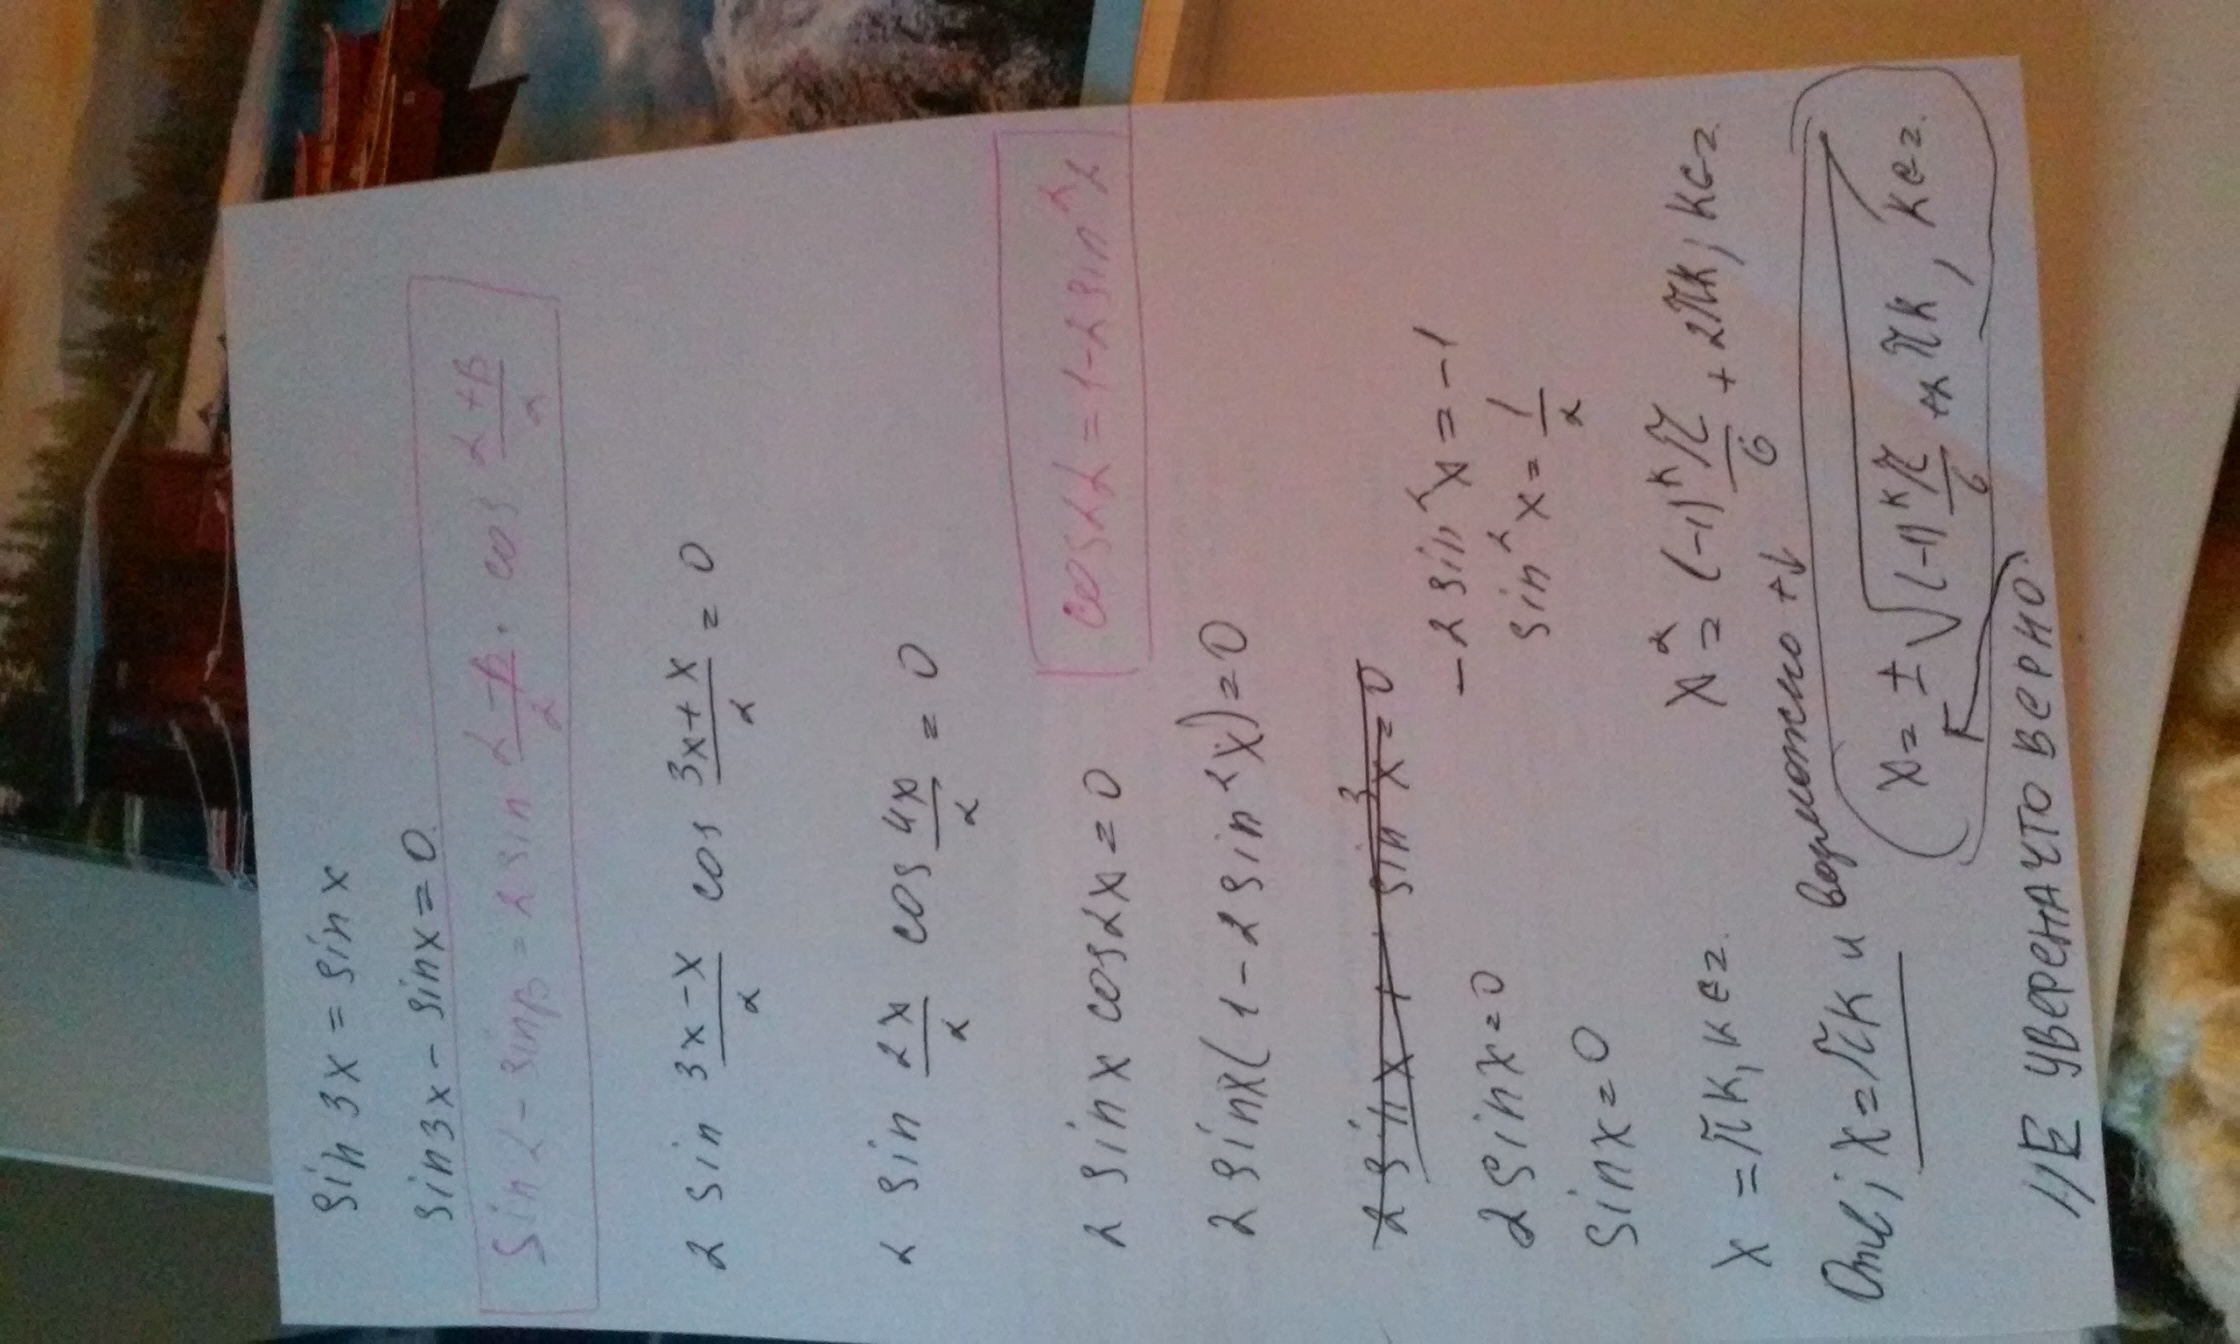 sin 3x = sin x
sin3x - sinx = 0
sin α - sinβ = 2 sin (α-β)/2 · cos (α+β)/2
2 sin (3x-x)/2 cos (3x+x)/2 = 0
2 sin 2x/2 cos 4x/2 = 0
2 sinx cos2x = 0
cos2α = 1-2sin²α
2 sinx(1-2sin²x) = 0
2sinx = 0
-2sin²x = -1
sinx = 0
sin²x = 1/2
x = πk, k∈z.
x² = (-1)ᵏ π/6 + 2πk, k∈z.
Отв; x = πk и возможно
x = ± √((-1)ᵏ π/6 +2πk, k∈z.
НЕ УВЕРЕНА ЧТО ВЕРНО.